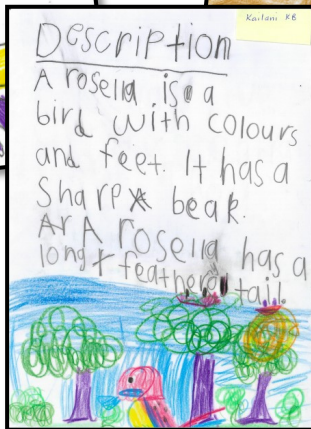 Kailani KB
Description
A rosella is a
bird with colours
and feet. It has a
Sharp beak.
A rosella has a
long feathered tail.